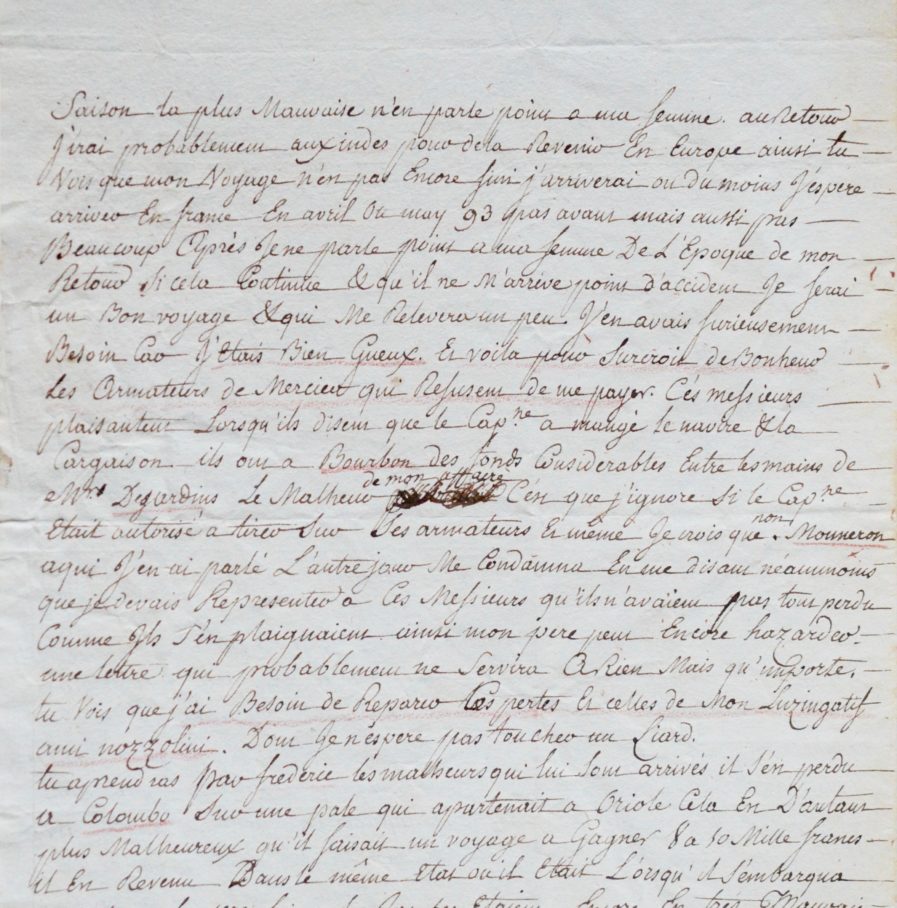 Saison la plus Mauvaise n'en parle point a ma femme. au Retour
J'irai probablement aux indes pour de la Revenir En Europe ainsi tu
Vois que mon Voyage n'en pas Encore fini j'arriverai ou du moins J'espere
arriver En france En avril ou may 93 pas avant mais aussi pas
Beaucoup Après Je ne parle point a ma femme De L'Epoque de mon
Retour Si cela Continue & qu'il ne M'arrive point d'accident Je ferai
un Bon voyage & qui Me Relevera un peu. J'en avais furieusement
Besoin Car J'Etais Bien Gueux. Et voila pour Surcroit de Bonheur
Les Armateurs de Mercier qui Refusent de me payer. Cés messieurs
plaisantent Lorsqu'ils disent que le Cap.ne a mangé le navire & la
Cargaison ils ont a Bourbon des fonds Considerables Entre les mains de
Mrs Desjardins Le Malheur de mon affaire C'en que j'ignore si le Cap.ne
Etait autorisé a tirer Sur Ses armateurs Et même Je crois que non. Monneron
a qui J'en ai parlé L'autre jour Me Condamna En me disant néammoins
que je devais Representer a Ces Messieurs qu'ils n'avaient pas tout perdu
Comme Ils S'en plaignaient ainsi mon pere peut Encore hazarder
une lettre qui probablement ne Servira A Rien Mais qu'importe.
tu Vois que j'ai Besoin de Reparer Ces pertes Et célles de Mon
ami nozzolini. Dont Je n'éspere pas toucher un Liard.
tu aprendras par frederic lés malheurs qui lui Sont arrivés il S'én perdu
a Colombo Sur une pale qui apartenait a Oriole Cela En D'autant
plus Malheureux qu'il faisait un voyage a Gagner 8 a 10 Mille francs
il En Revenu Dans le même Etat ou il Etait Lorsqu'il S'embarqua